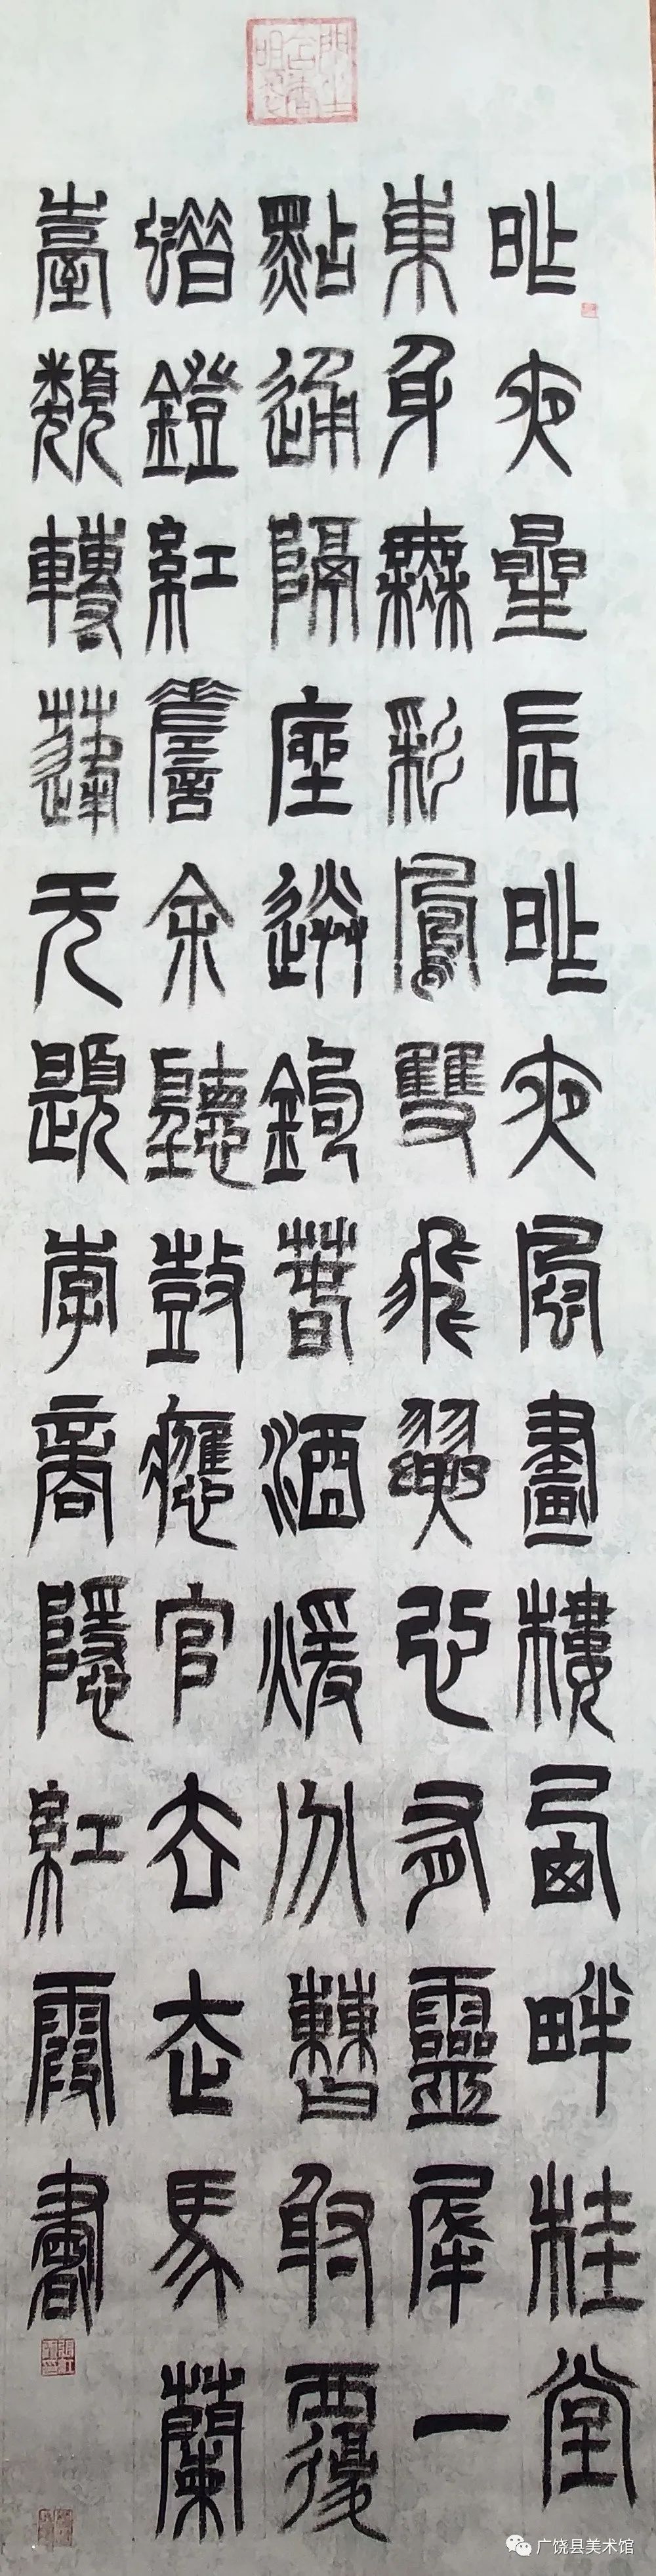 昨夜星辰昨夜風畫樓西畔桂堂
東身無彩鳳雙飛翼心有靈犀一
點通隔座送鉤春酒暖分曹射覆
蜡鐙紅嗟余聽鼓應官去走馬蘭
臺類轉蓬无題李商隱紅霞書
广饶县美术馆